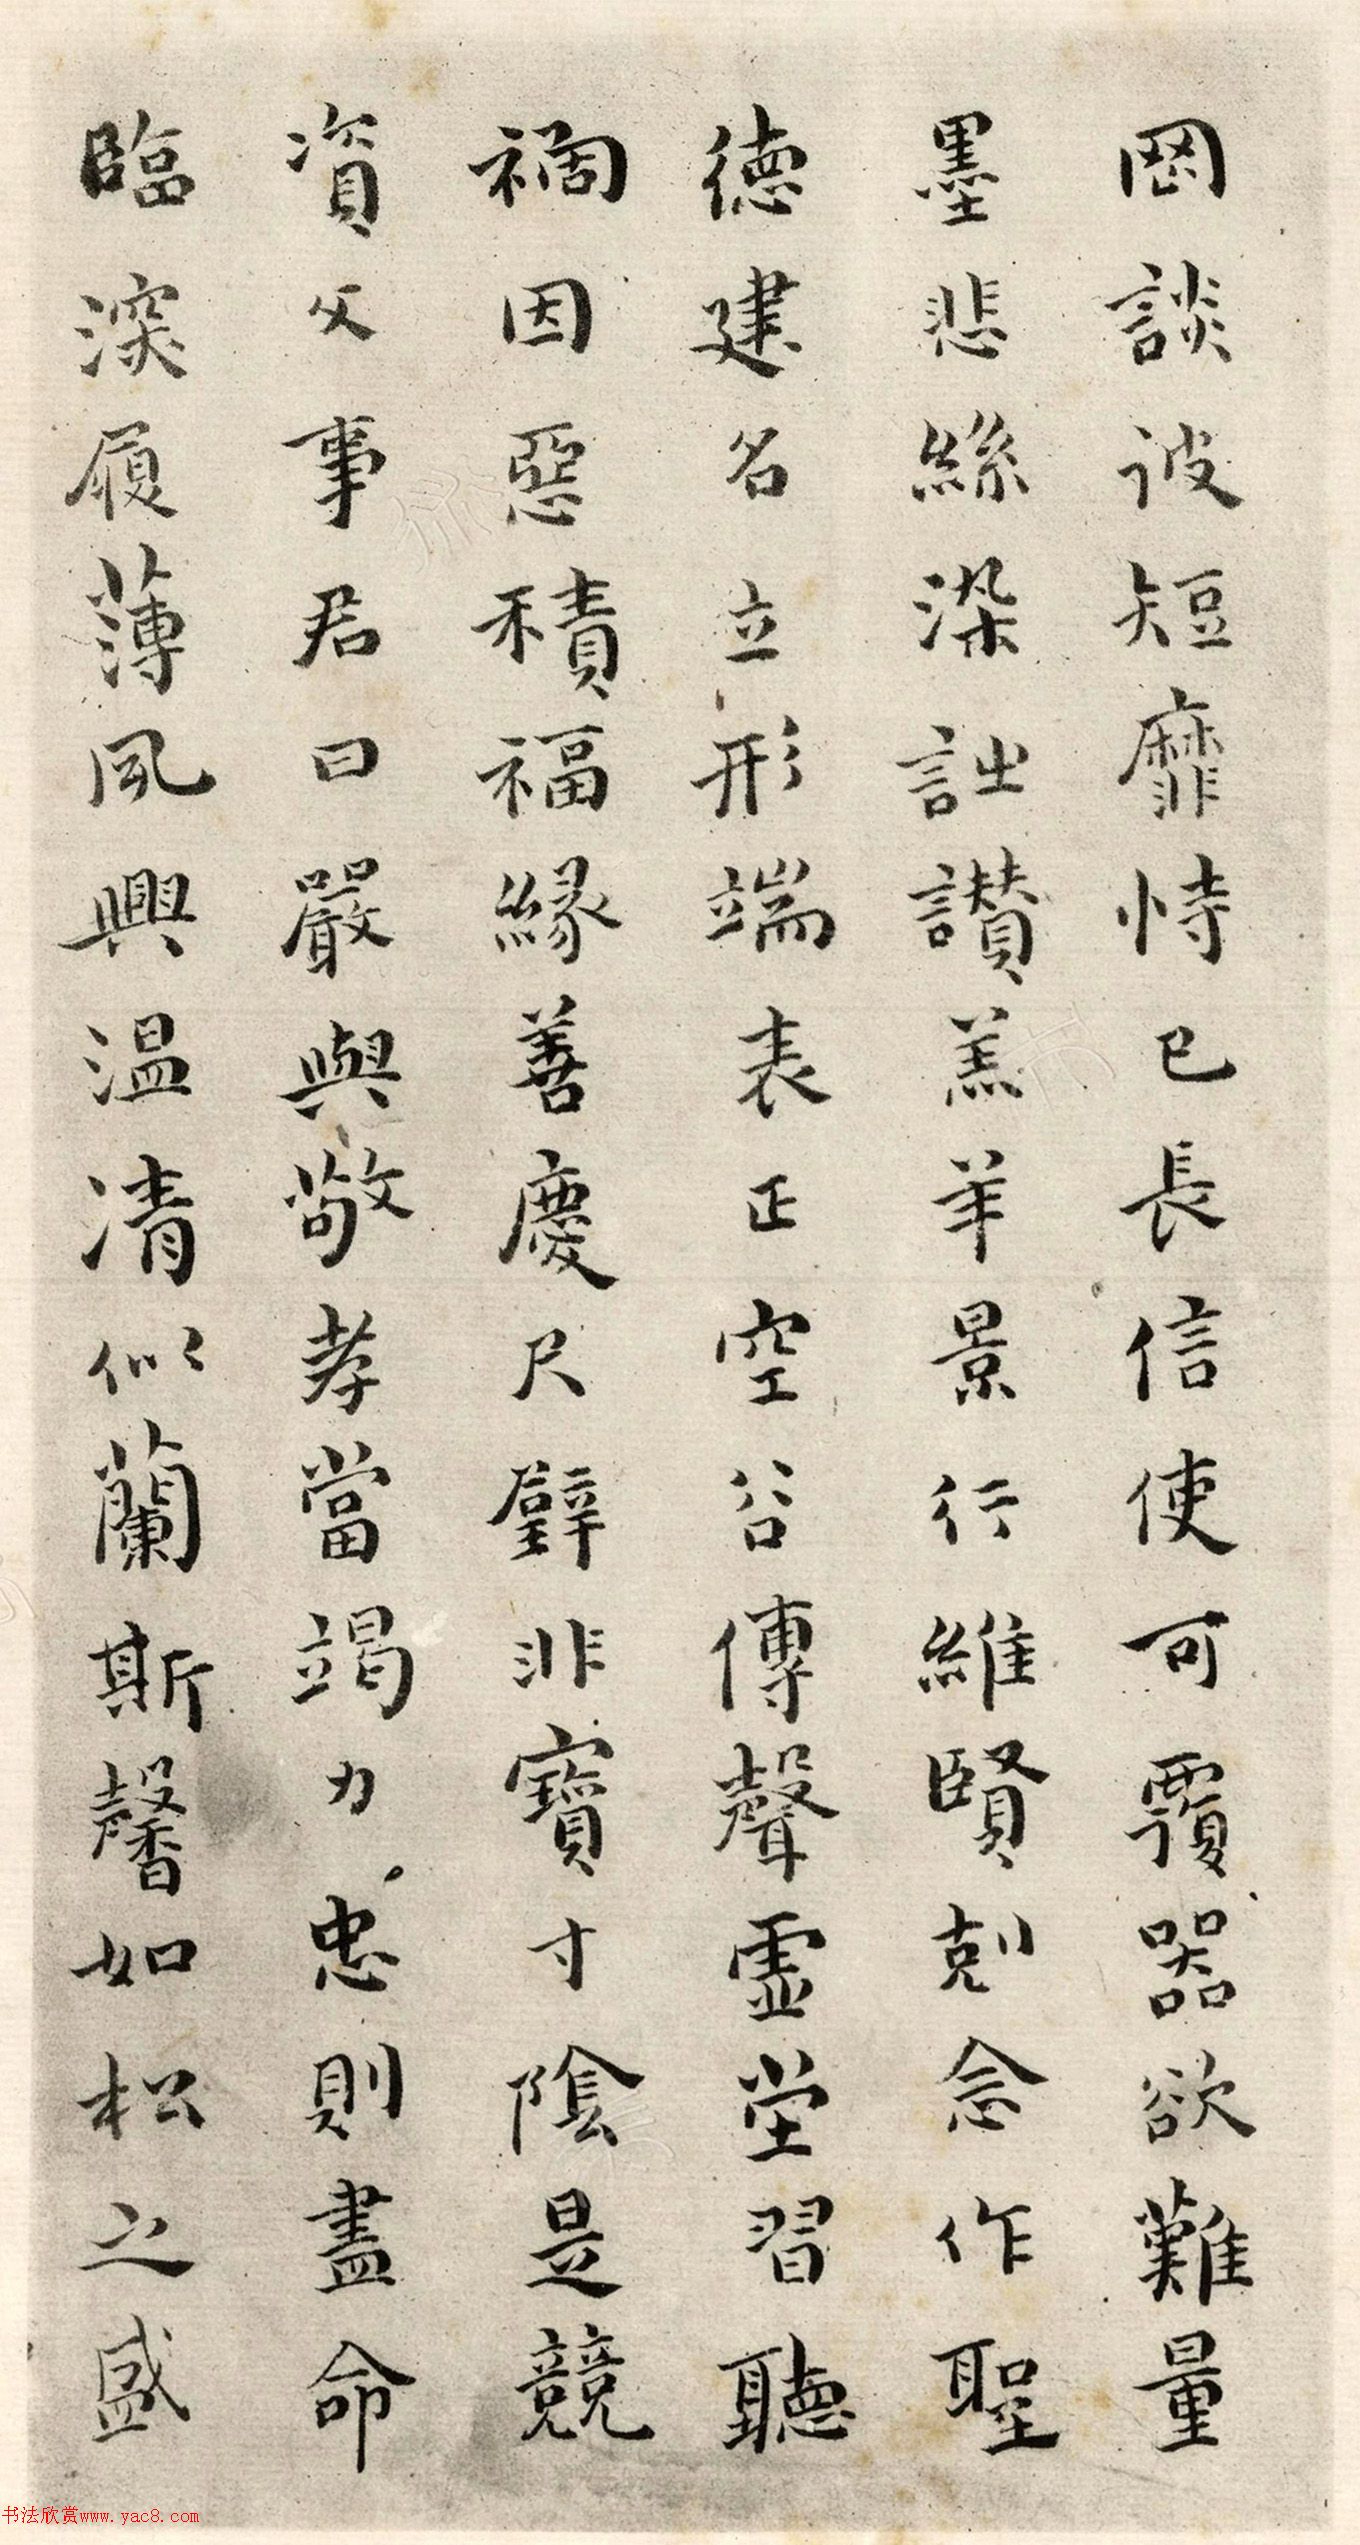 罔談彼短靡恃己長信使可覆器欲難量
墨悲絲染詩讚羔羊景行維賢剋念作聖
德建名立形端表正空谷傳聲虛堂習聽
禍因惡積福緣善慶尺璧非寶寸陰是競
資父事君曰嚴與敬孝當竭力忠則盡命
臨深履薄夙興溫凊似蘭斯馨如松之盛
书法欣赏www.yac8.com